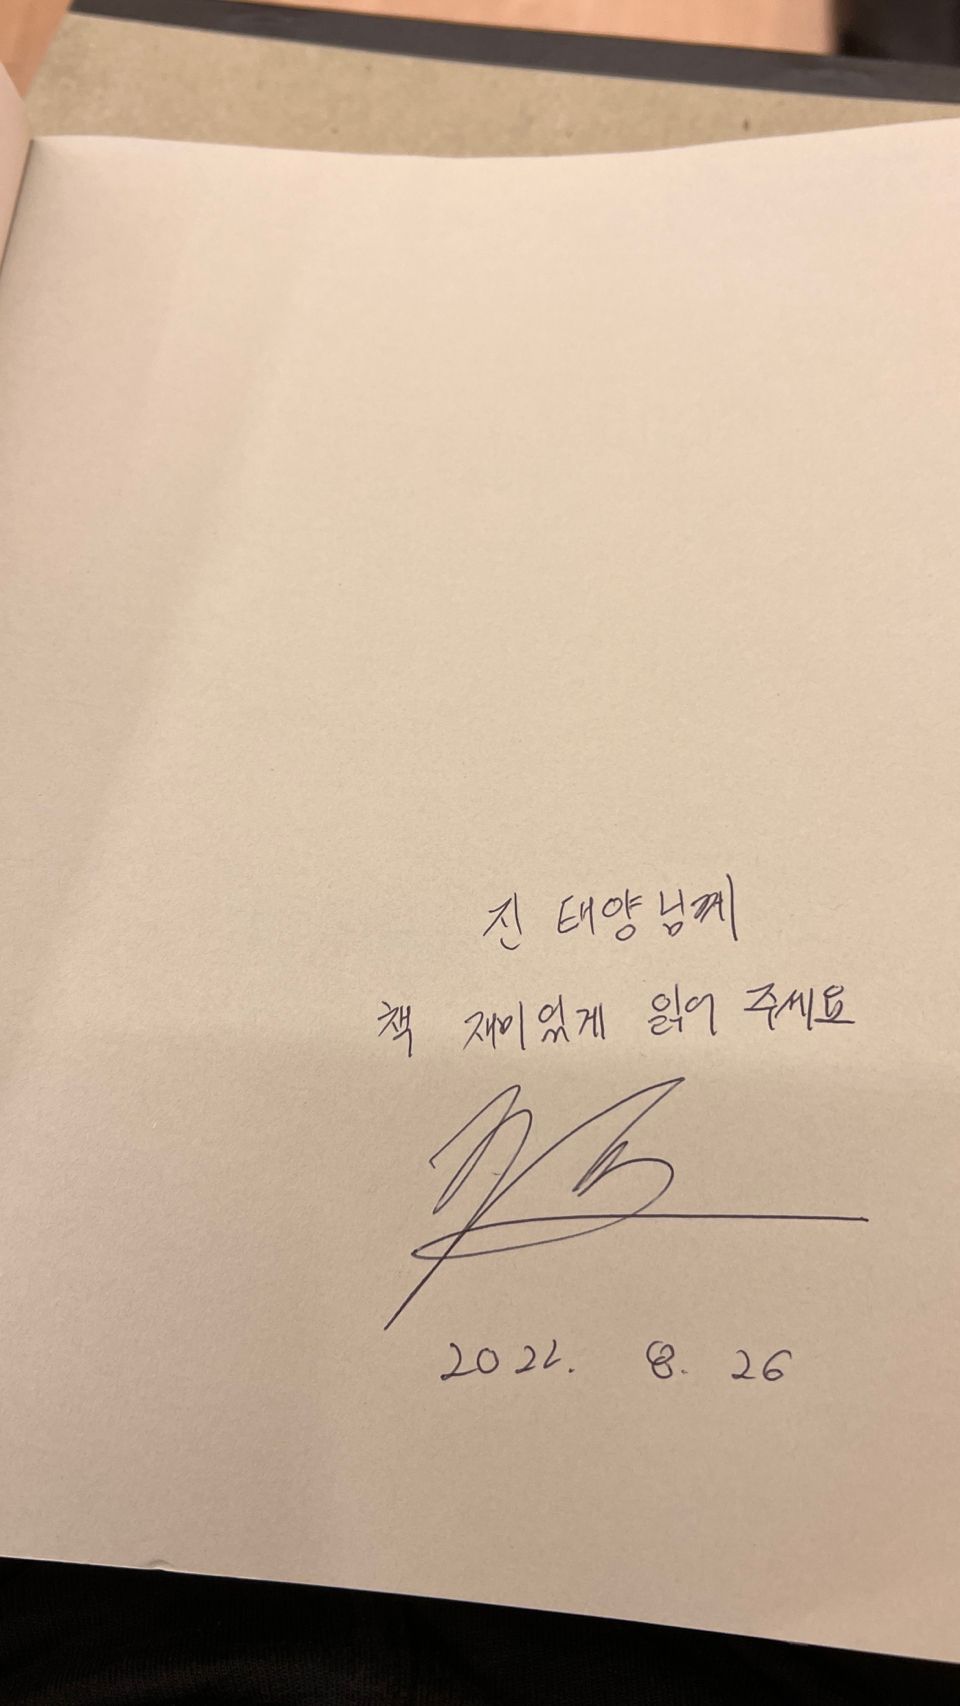 진 태양님께
책 재미있게 읽어 주세요
2022. 8. 26